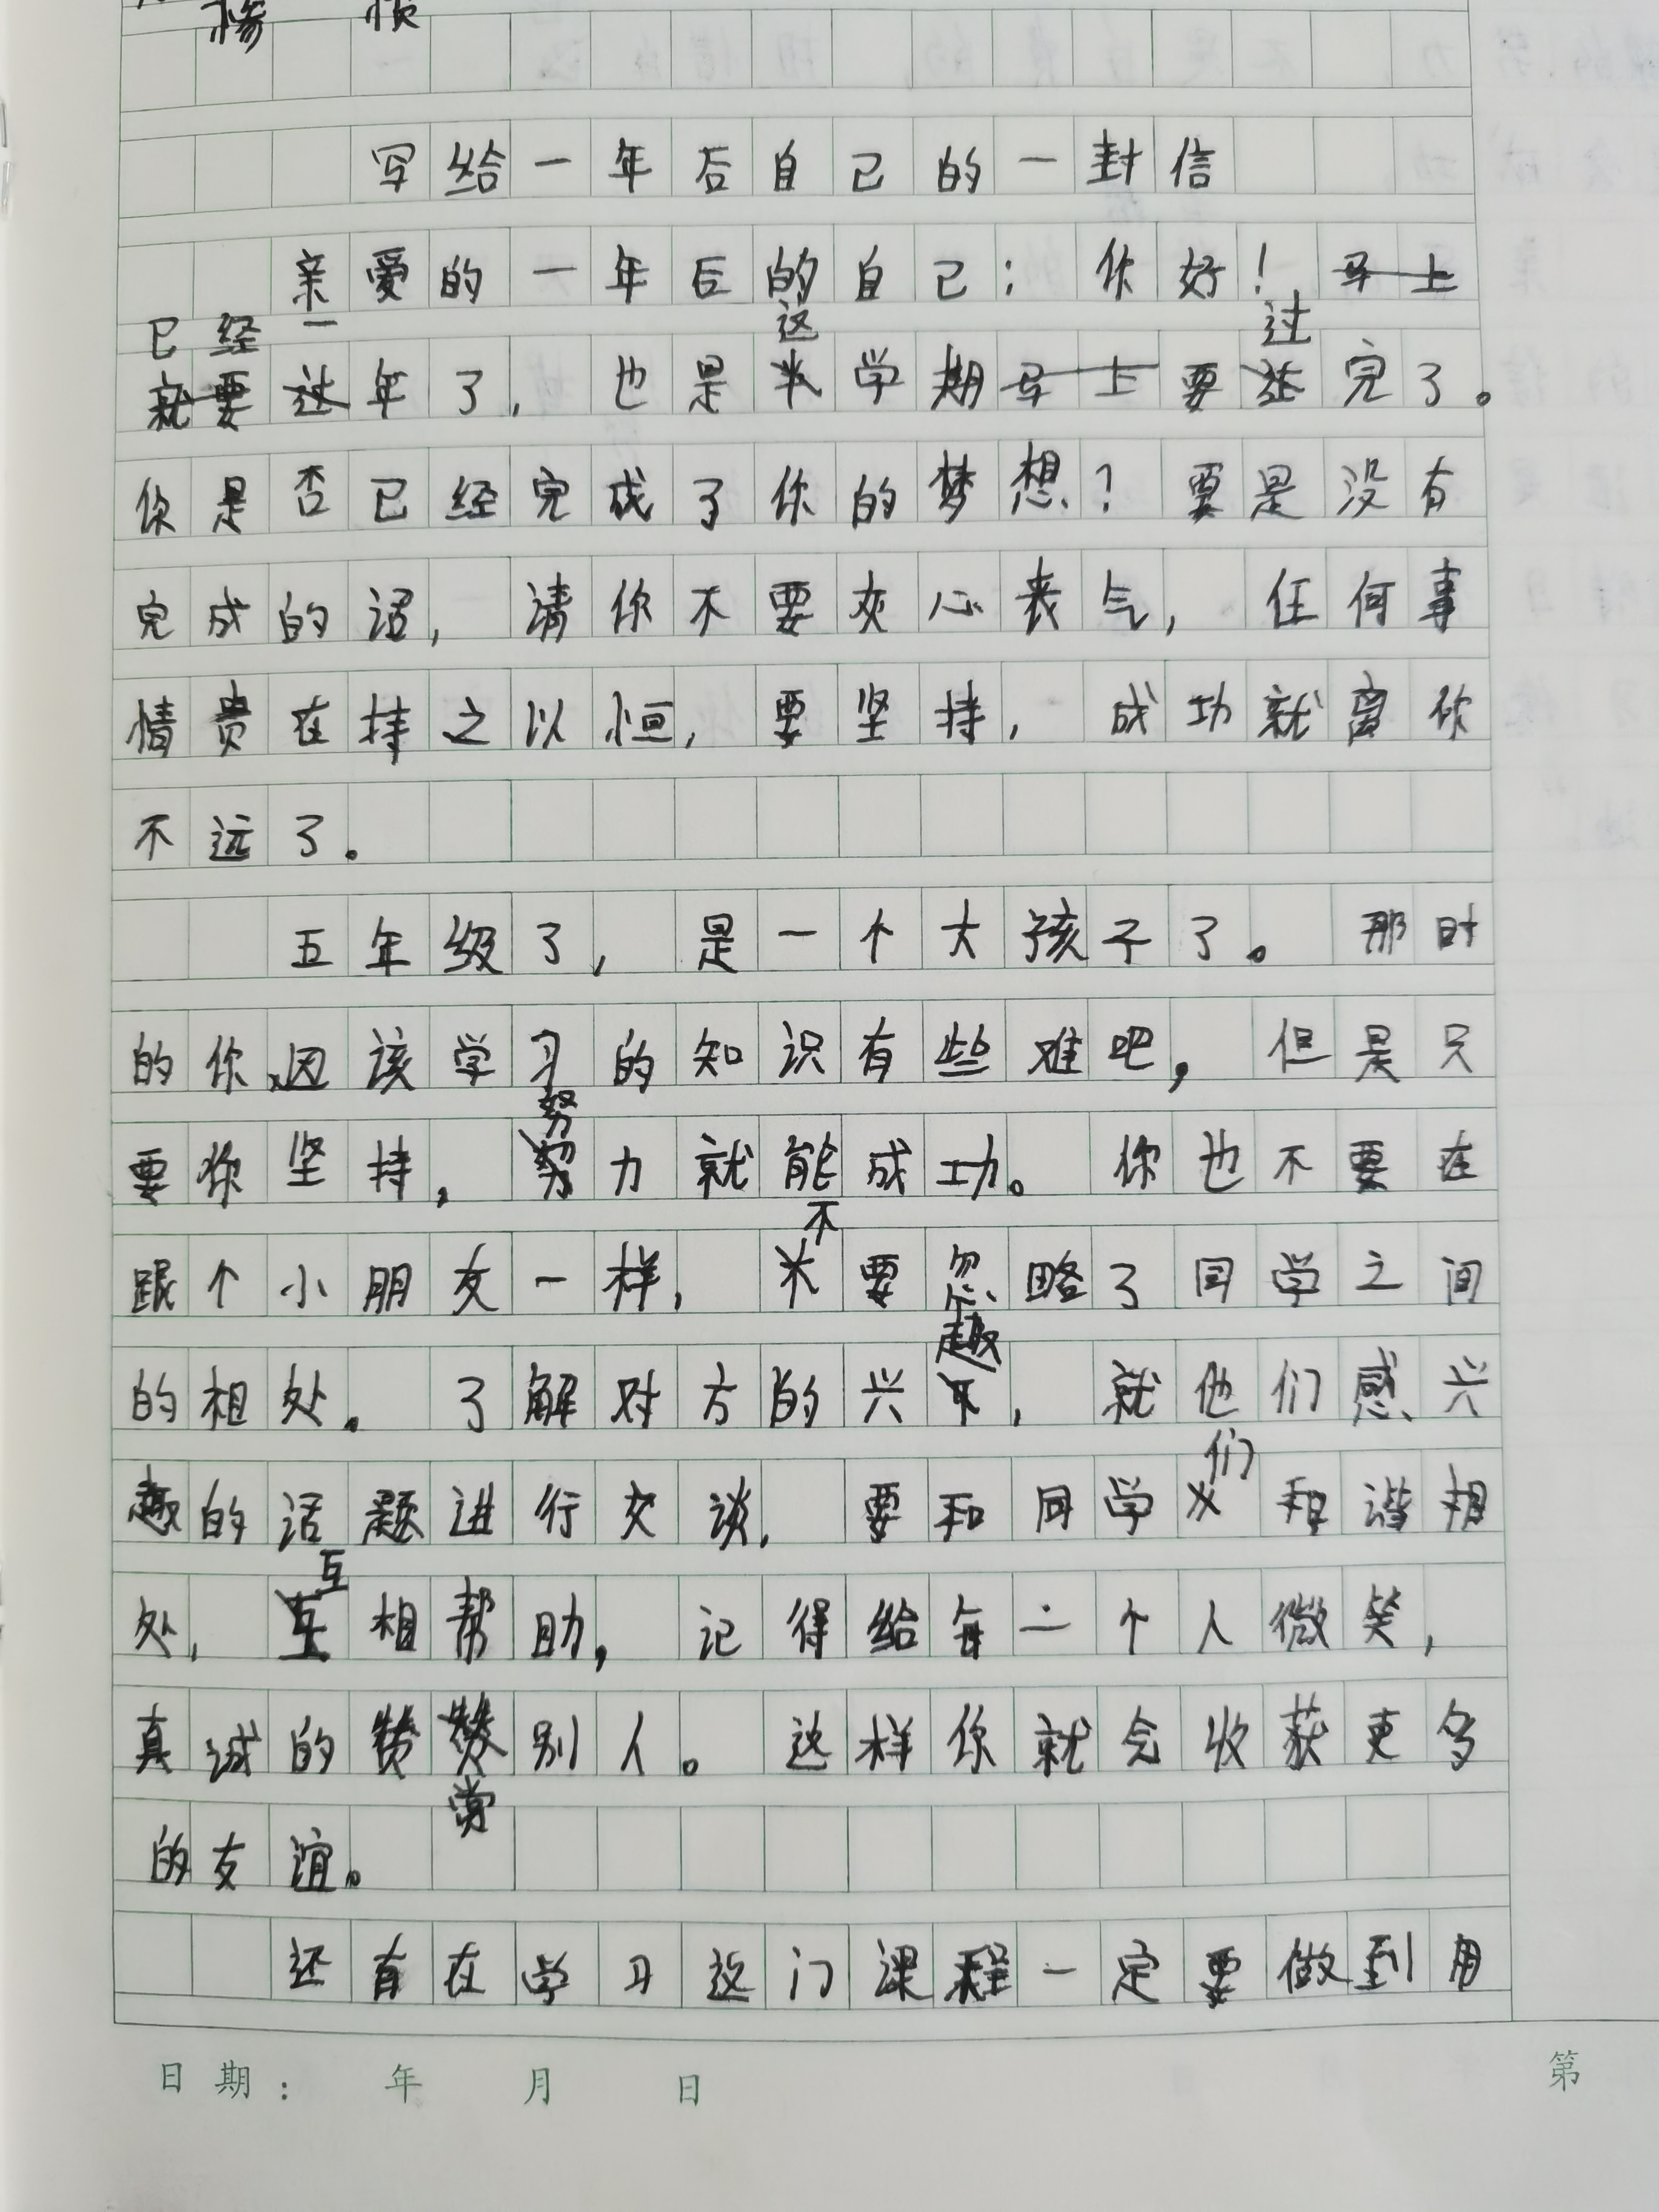 写给一年后自己的一封信
亲爱的一年后的自己：你好！
已经一年了，也是这学期要过完了。
你是否已经完成了你的梦想？要是没有
完成的话，请你不要灰心丧气，任何事
情贵在持之以恒，要坚持，成功就离你
不远了。
五年级了，是一个大孩子了。那时
的你，因该学习的知识有些难吧，但是只
要你坚持，努力就能成功。你也不要在
跟个小朋友一样，不要忽略了同学之间
的相处。了解对方的兴趣，就他们感兴
趣的话题进行交谈，要和同学们和谐相
处，互相帮助，记得给每一个人微笑，
真诚的赞赏别人。这样你就会收获更多
的友谊。
还有在学习这门课程一定要做到用
日期： 年 月 日
第